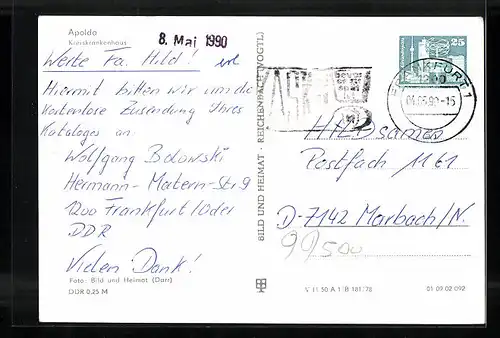 Apolda
Kreiskrankenhaus
8. Mai 1990
Werte Fa. Hild!
Hiermit bitten wir um die
kostenlose Zusendung Ihres
Kataloges an
Wolfgang Bolowski
Hermann-Matern-Str 9
1200 Frankfurt/Oder
DDR
Vielen Dank!
Foto: Bild und Heimat (Darr)
DDR 0,25 M
BILD UND HEIMAT · REICHENBACH (VOGTL)
25
FRANKFURT 1
HILD Samen
Postfach 1161
D-7142 Marbach/N.
99500
V 11 50 A 1/B 181/78
01 09 02 092